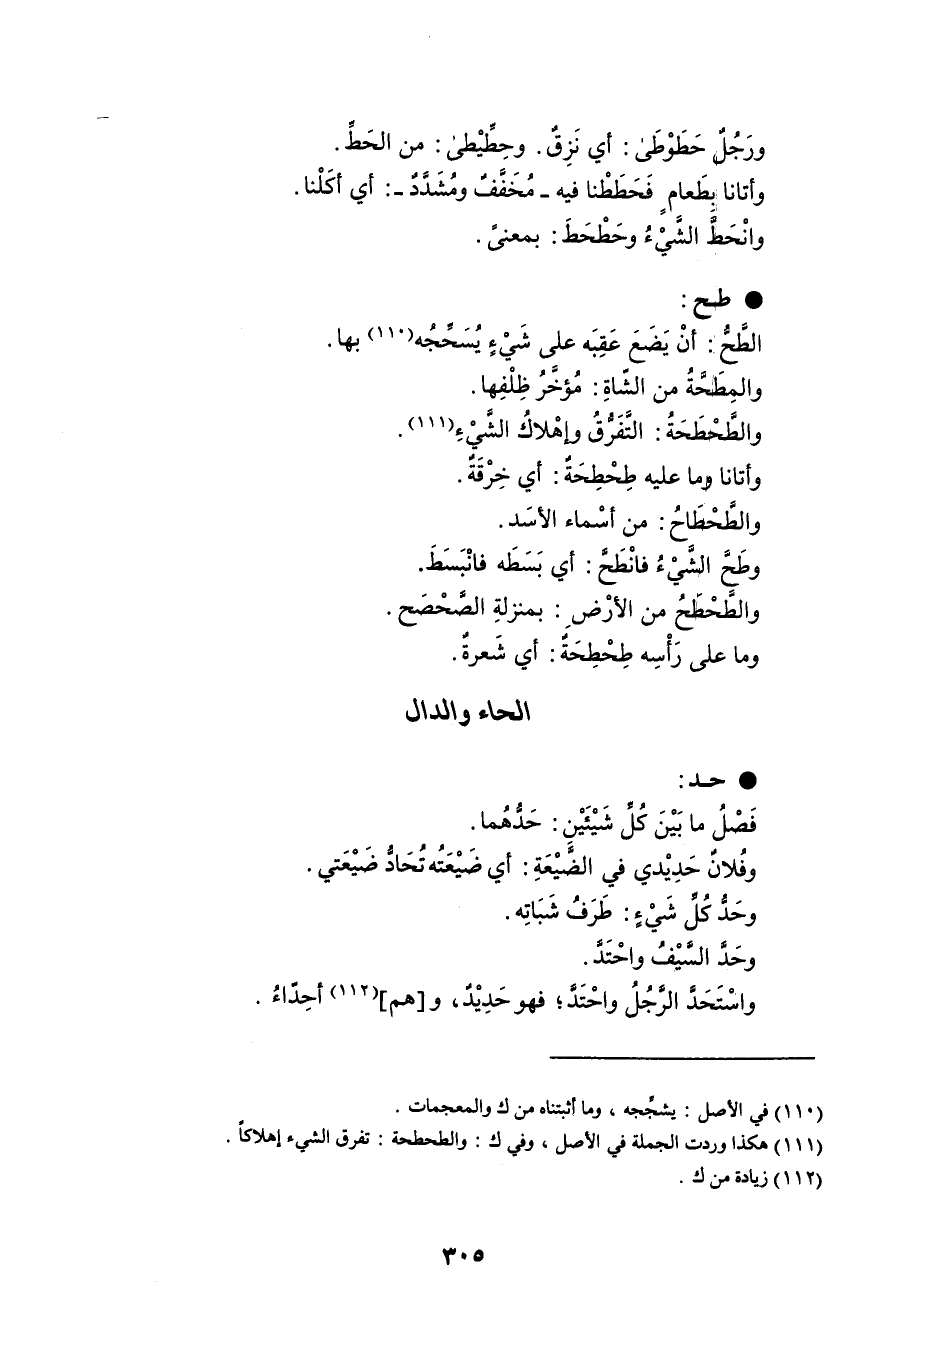 ورَجُلٌ حَطَوْطَىٰ: أي نَزِقٌ. وحِطِّيْطىٰ: من الحَطِّ.
وأتانا بِطَعامٍ فَحَطَطْنا فيه ـ مُخَفَّفٌ ومُشَدَّدٌ ـ: أي أكَلْنا.
وانْحَطَّ الشَّيْءُ وحَطْحَطَ: بمعنىً.
● طح:
الطَّحُّ: أنْ يَضَعَ عَقِبَه على شَيْءٍ يُسَحِّجُه(١١٠) بها.
والمِطَحَّةُ من الشّاةِ: مُؤخَّرُ ظِلْفِها.
والطَّحْطَحَةُ: التَّفَرُّقُ وإهْلاكُ الشَّيْءِ(١١١).
وأتانا وما عليه طِحْطِحَةٌ: أي خِرْقَةٌ.
والطَّحْطَاحُ: من أسْماء الأسَد.
وطَحَّ الشَّيْءُ فانْطَحَّ: أي بَسَطَه فانْبَسَطَ.
والطَّحْطَحُ من الأرْضِ: بمنزلةِ الصَّحْصَح.
وما على رَأْسِه طِحْطِحَةٌ: أي شَعرةٌ.
الحاء والدال
● حد:
فَصْلُ ما بَيْنَ كُلِّ شَيْئَيْنِ: حَدُّهُما.
وفُلانٌ حَدِيْدي في الضَّيْعَةِ: أي ضَيْعَتُه تُحَادُّ ضَيْعَتي.
وحَدُّ كُلِّ شَيْءٍ: طَرَفُ شَبَاتِه.
وحَدَّ السَّيْفُ واحْتَدَّ.
واسْتَحَدَّ الرَّجُلُ واحْتَدَّ؛ فهو حَدِيْدٌ، و[هم](١١٢) أحِدّاءُ.
(١١٠) في الأصل: يشجّجه، وما أثبتناه من ك والمعجمات.
(١١١) هكذا وردت الجملة في الأصل، وفي ك: والطحطحة: تفرق الشيء إهلاكاً.
(١١٢) زيادة من ك.
٣٠٥